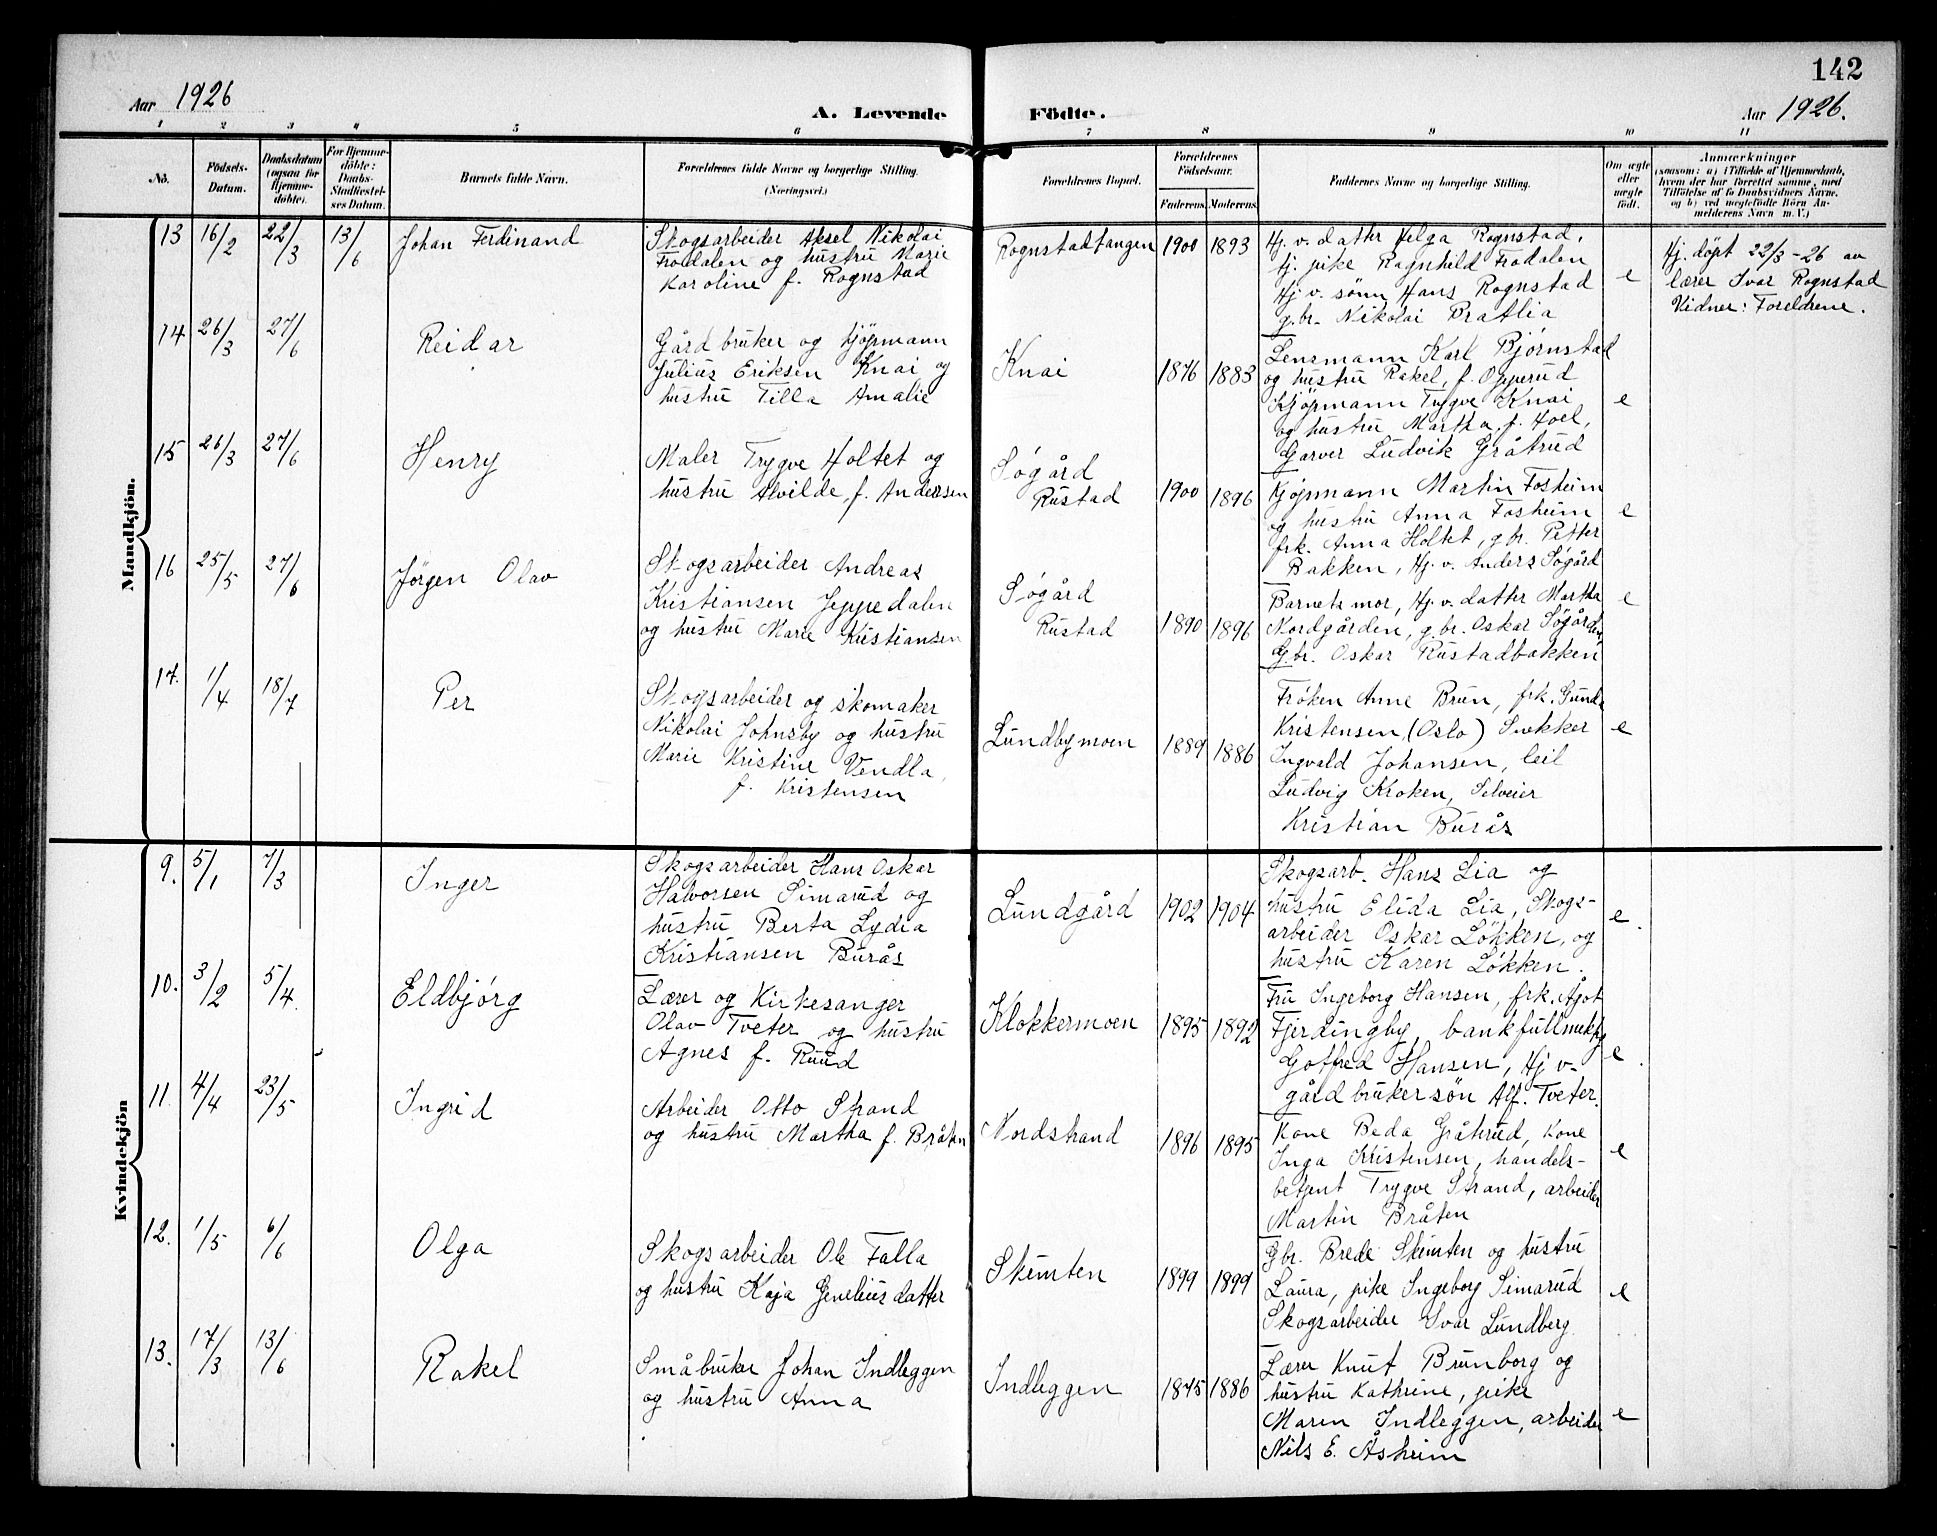 142
Aar 1926
A. Levende Födte.
Aar 1926.
1 2 3 4 5 6 7 8 9 10 11
No.
Födsels-Datum.
Daabsdatum (ogsaa for Hjemme-döbte).
For Hjemme-döbte: Daabs-Stadfæstel-ses Datum.
Barnets fulde Navn.
Forældrenes fulde Navne og borgerlige Stilling. (Næringsvei.)
Forældrenes Bopæl.
Forældrenes Födselsaar.
Faderens Moderens
Faddernes Navne og borgerlige Stilling.
Om ægte eller uægte födt.
Anmærkninger
(saasom: a) i Tilfælde af Hjemmedaab,
hvem der har forrettet samme, med
Tilföielse af to Daabsvidners Navne,
og b) ved uægtefödte Börn An-
melderens Navn m. V.)
Mandkjön.
13 16/2 22/3 13/6 Johan Ferdinand
Skogsarbeider Aksel Nikolai
Frodalen og hustru Marie
Karoline f. Rognstad
Rognstadtangen 1900 1893
Hj. v. datter Helga Rognstad,
tj. pike Ragnhild Frodalen
Hj. v. sönn Hans Rognstad
g.br. Nikolai Bratlia
e
Hj. döpt 22/3-26 av
lærer Ivar Rognstad
Vidner: Foreldrene.
14 26/3 27/6 Reidar
Gårdbruker og kjöpmann
Julius Eriksen Knai og
hustru Tilla Amalie
Knai 1876 1883
Lensmann Karl Björnstad
og hustru Rakel, f. Opperud
Kjöpmann Trygve Knai
og hustru Martha, f. Hoel,
Garver Ludvik Gråtrud
e
15 26/3 27/6 Henry
Maler Trygve Holtet og
hustru Alvilde, f. Andersen
Søgård
Rustad
1900 1896
Kjöpmann Martin Fosheim
og hustru Anna Fosheim
frk. Anna Holtet, g.br. Petter
Bakken, Hj. v. Anders Søgård
e
16 25/5 27/6 Jörgen Olav
Skogsarbeider Andreas
Kristiansen Jeppedalen
og hustru Marie Kristiansen
Søgård
Rustad
1890 1896
Barnets mor, Hj. v. datter Martha
Nordgården, g.br. Oskar Søgården,
G.br. Oskar Rustadbakken
e
17. 1/4 18/7 Per
Skogsarbeider og skomaker
Nikolai Johnsby og hustru
Marie Kristine Vendla,
f. Kristensen
Lundbymoen 1889 1886
Fröken Anne Brun, frk. Gunda
Kristensen, (Oslo) Snekker
Ingvald Johansen, leil
Ludvig Kroken, Selveier
Kristian Burås
e
Kvindekjön
9. 5/1 7/3 Inger
Skogsarbeider Hans Oskar
Halvorsen Simarud og
hustru Berta Lydia
Kristiansen Burås
Lundgård 1902 1904
Skogsarb. Hans Lia og
hustru Elida Lia, Skogs-
arbeider Oskar Lökken, og
hustru Karen Lökken.
e.
10. 3/2 5/4 Eldbjörg
Lærer og Kirkesanger
Olav Tveter og hustru
Agnes f. Ruud
Klokkermoen 1895 1892
Fru Ingeborg Hansen, frk. Ågot
Fjerdingby, bankfullmektig
Gotfred Hansen, Hj v-
gårdbrukersön Alf. Tveter.
e.
11. 4/4 23/5 Ingrid
Arbeider Otto Strand
og hustru Martha f. Bråten
Nordstrand 1896 1895
Kone Beda Gråtrud, Kone
Inga Kristensen, handels-
betjent Trygve Strand, arbeider
Martin Bråten
e
12. 1/5 6/6 Olga
Skogsarbeider Ole Falla
og hustru Kaja Geneliusdatter
Skimten 1899 1899
Gbr. Brede Skimten og hustru
Laura, pike Ingeborg Simarud
Skogsarbeider Ivar Lundberg
e
13. 17/3 13/6 Rakel
Småbruker Johan Indleggen
og hustru Anna
Indleggen 1875 1886
Lærer Knut Brunborg og
hustru Kathrine, pike
Maren Indleggen, arbeider
Nils E. Åsheim
e